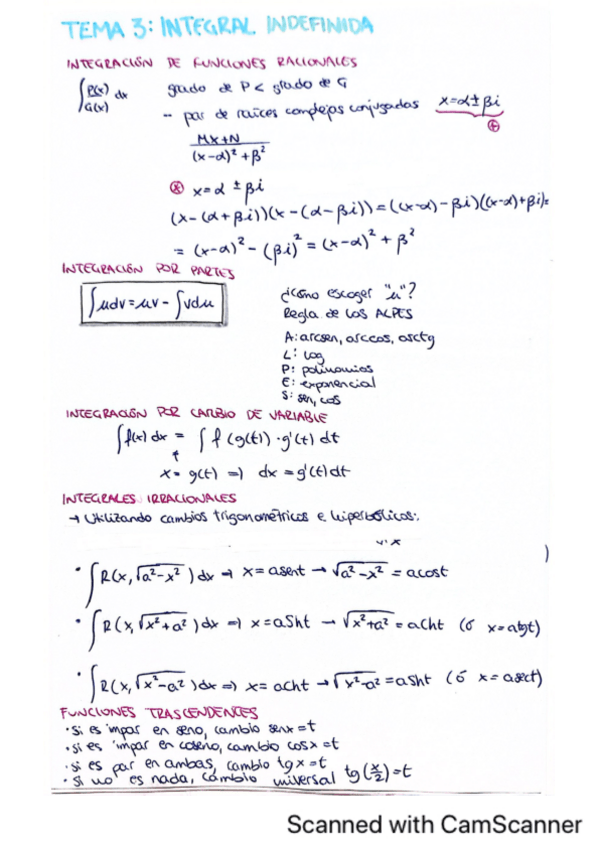 TEMA 3: INTEGRAL INDEFINIDA
INTEGRACIÓN DE FUNCIONES RACIONALES
∫ P(x)/G(x) dx grado de P < grado de G
– par de raíces complejas conjugadas x = α ± βi
⊛
Mx+N / (x-α)² + β²
⊛ x = α ± βi
(x-(α+βi))(x-(α-βi)) = ((x-α)-βi)((x-α)+βi) =
= (x-α)² - (βi)² = (x-α)² + β²
INTEGRACIÓN POR PARTES
∫udv = uv - ∫vdu
¿cómo escoger "u"?
Regla de los ALPES
A: arcsen, arccos, arctg
L: log
P: polinomios
E: exponencial
S: sen, cos
INTEGRACIÓN POR CAMBIO DE VARIABLE
∫f(x) dx = ∫ f (g(t)) · g'(t) dt
↑
x = g(t) => dx = g'(t) dt
INTEGRALES IRRACIONALES
→ Utilizando cambios trigonométricos e hiperbólicos:
)
• ∫R(x, √a²-x² ) dx → x = a sent → √a²-x² = a cost
• ∫R(x, √x²+a² ) dx => x = a Sht → √x²+a² = a Cht (ó x = a tgt)
• ∫R(x, √x²-a² ) dx => x = a cht → √x²-a² = a Sht (ó x = a sect)
FUNCIONES TRASCENDENTES
• si es impar en seno, cambio senx = t
• si es impar en coseno, cambio cosx = t
• si es par en ambas, cambio tg x = t
• si no es nada, cambio universal tg(x/2) = t
Scanned with CamScanner